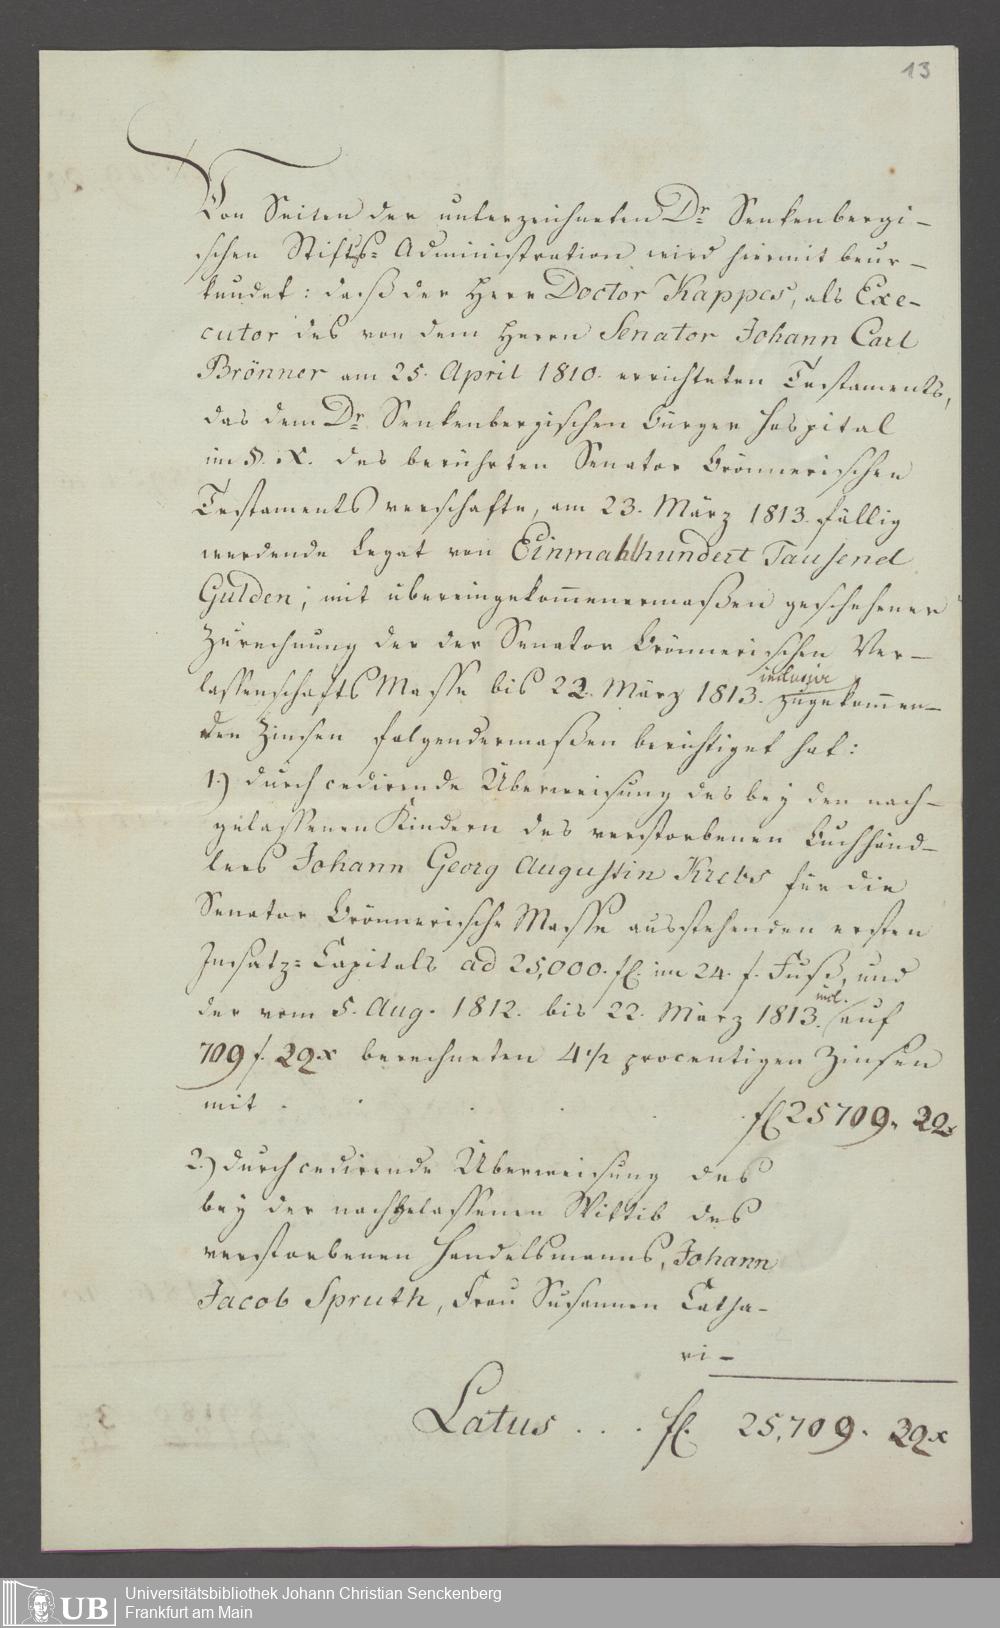 13
Von Seiten der unterzeichneten Dr Senkenbergi-
schen Stifts-Administration wird hiermit beur-
kundet: daß der Herr Doctor Kappes, als Exe-
cutor des von dem Herrn Senator Johann Carl
Brönner am 25. April 1810. errichteten Testaments,
das dem Dr Senkenbergischen Bürger Hospital
im §. X. des berührten Senator Brönnerischen
Testaments verschafte, am 23. März 1813. fällig
werdende Legat von Einmahlhundert Tausend
Gulden; mit übereingekom̄enermaßen geschehener
Zurechnung der der Senator Brönnerischen Ver-
lassenschafts Masse bis 22. März 1813. inclusive zugekom̄en-
den Zinsen folgendermaßen berichtiget hat:
1.) durch cedirende Überweisung des bey den nach-
gelassenen Kindern des verstorbenen Buchhänd-
lers Johann Georg Augustin Krebs für die
Senator Brönnerische Masse ausstehenden ersten
Insatz-Capitals ad 25,000. fl. im 24. f. Fuß, und
der vom 5. Aug. 1812. bis 22. März 1813. incl. auf
709 f. 22 x berechneten 4 1/2 procentigen Zinsen
mit . . . . . fl 25709. 22x
2.) durch cedirende Überweisung des
bey der nachgelassenen Wittib des
verstorbenen Handelsmanns, Johann
Jacob Spruth, Frau Susannen Catha-
ri-
Latus . . . fl. 25,709. 22x
UB
Universitätsbibliothek Johann Christian Senckenberg
Frankfurt am Main